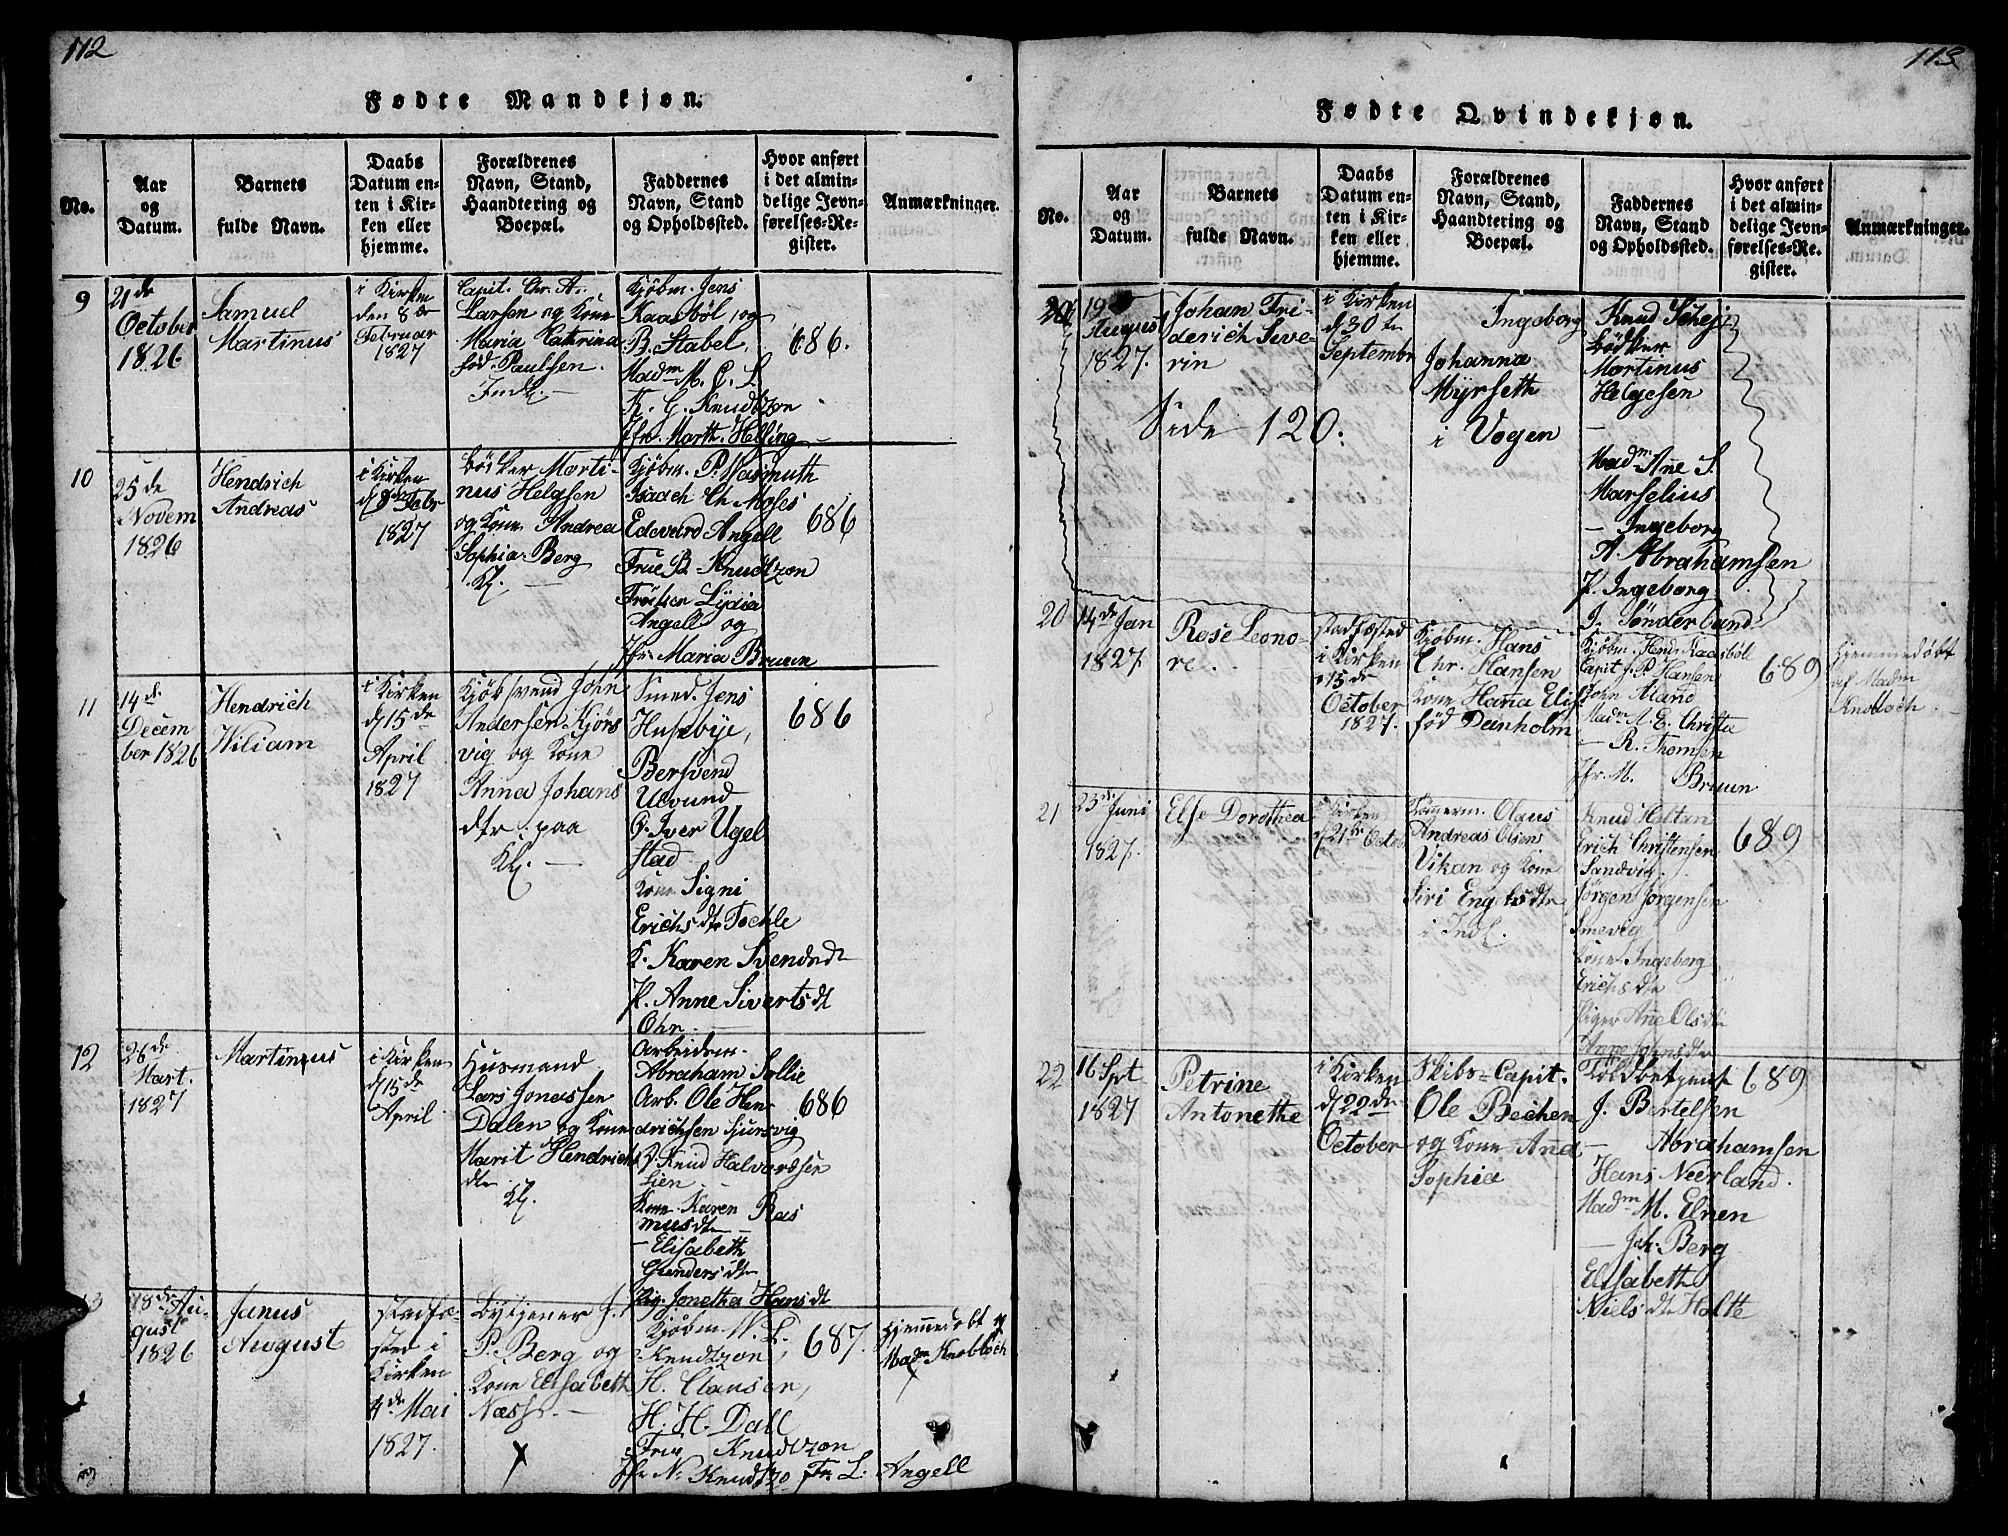 112
Fødte Mandkjøn.
No.
Aar
og
Datum.
Barnets
fulde Navn.
Daabs
Datum en-
ten i Kir-
ken eller
hjemme.
Forældrenes
Navn, Stand,
Haandtering og
Boepæl.
Faddernes
Navn, Stand
og Opholdssted.
Hvor anført
i det almin-
delige Jevn-
førelses-Re-
gister.
Anmærkninger.
9
21de
October
1826
Samuel
Martinus
i Kirken
den 8de
Februar
1827
Capit. Chr. A.
Larsen og Kone
Maria Cathrina
fød Paulsen.
Indl.
Kjøbm. Jens
Kaasbøl, og
B. Stabel,
Madm M. C. L.
K. G. Knudtzon
Jfr. Marth. Helsing
686.
10
25de
Novem
1826
Hendrich
Andreas
i Kirken
1827
Bødker Marti-
nus Helgsen
og Kone Andrea
Sophia Berg
Kl.
Kjøbm. P.
Isaach Ch. Moses
Edevard Angell
Frue B. Knudtzon
Frøiken Lydia
Angell og
Jfr. Maria Bruun
686
11
14de
Decem
ber 1826
Hendrich
Wiliam
i Kirken
d 15de
April
1827
Kjøbsvend John
Andersen Kjørs
vig og Kone
Anna Johans
dtr. paa
Kl.
Smed. Jens
Husebye,
Bersvend
Udvund
Iver Ugel
stad
Kone Signi
Erichsdtr Tochle
K. Karen Svendsdt
P. Anne Sivertsdt
Ohr.
686
12
26de
Mart.
1827
Martinus
i Kirken
d 15de
April
Husmand
Lars Jonassen
Dalen og Kone
Marit Hendrichs
dtr
Kl.
Arbeidsm.
Abraham Sollie
Arb. Ole Hen
drichsen Kjursvig
Knud Halvorsen
Lien
Kone Karen Ras
musdtr
- Elisabeth
Gundersdtr
Pig. Jonetha Hansdt
686
13
18de Au-
gust
1826
Janus
August
stadfæ-
sted i
Kirken
4de Mai
1827.
Bytjener J.
P. Berg og
Kone Elisabeth
Næss.
Kjøbm. N. L.
Knudtzon,
H. Clausen,
H. H. Dall
Frue Knudtzon
Jfr N. Knudtzo Fr. L. Angell
687.
Hjemmedøbt af
Madm Knobloch
113
Fødte Qvindekjøn.
No.
Aar
og
Datum.
Barnets
fulde Navn.
Daabs
Datum en-
ten i Kir-
ken eller
hjemme.
Forældrenes
Navn, Stand,
Haandtering og
Boepæl.
Faddernes
Navn, Stand
og Opholdssted.
Hvor anført
i det almin-
delige Jevn-
førelses-Re-
gister.
Anmærkninger.
20
19
August
1827.
Johan Fri-
derich Sive-
rin
Side 120.
i Kirken
d 30te
Septembr
Ingeborg
Johanna
Myrseth
i Vogen
Knud
Bødker
Martinus
Helgesen
Madm Ane S.
Marselius
- Ingeborg
A. Abrahamsen
P. Ingeborg
J. Sønderland
20
14de Jan
1827.
Rose Leono-
re.
stadfæsted
i Kirken
15de
October
1827.
Kjøbm. Hans
Chr. Hansen
Kone Hana Elis
fød Danholm
Kjøbm. Hend. Kaasbøl
Capit. J. P. Hansen
John Aland
Madm M. E. Christie
- R. Thomsen
Jfr. M. Bruun
689
Hjemmedøbt
af Madm
Knobloch
21
23de Juni
1827.
Else Dorothea
i Kirken
d 21de Octob
Olaus
Andreas Olsen
Vikan og Kone
Siri Engelsdtr
i Indl.
Knud Holtan
Erich Christensen
Sandvig.
Jørgen Jørgensen
Smevig
Kone Ingeborg
Erichsdtr
Piger Ane Olsdtr
Anne Johnsdtr
689
22
16 Spt
1827
Petrine
Antonethe
i Kirken
d 22de
October
Skibs-Capit.
Ole Bechen
og Kone Ana
Sophia
Toldbetjent
J. Bertelsen
- Abrahamsen
Hans Neerland.
Madm M. Elnen
- Joh. Berg
Elisabeth
Nielsdtr Holte
689